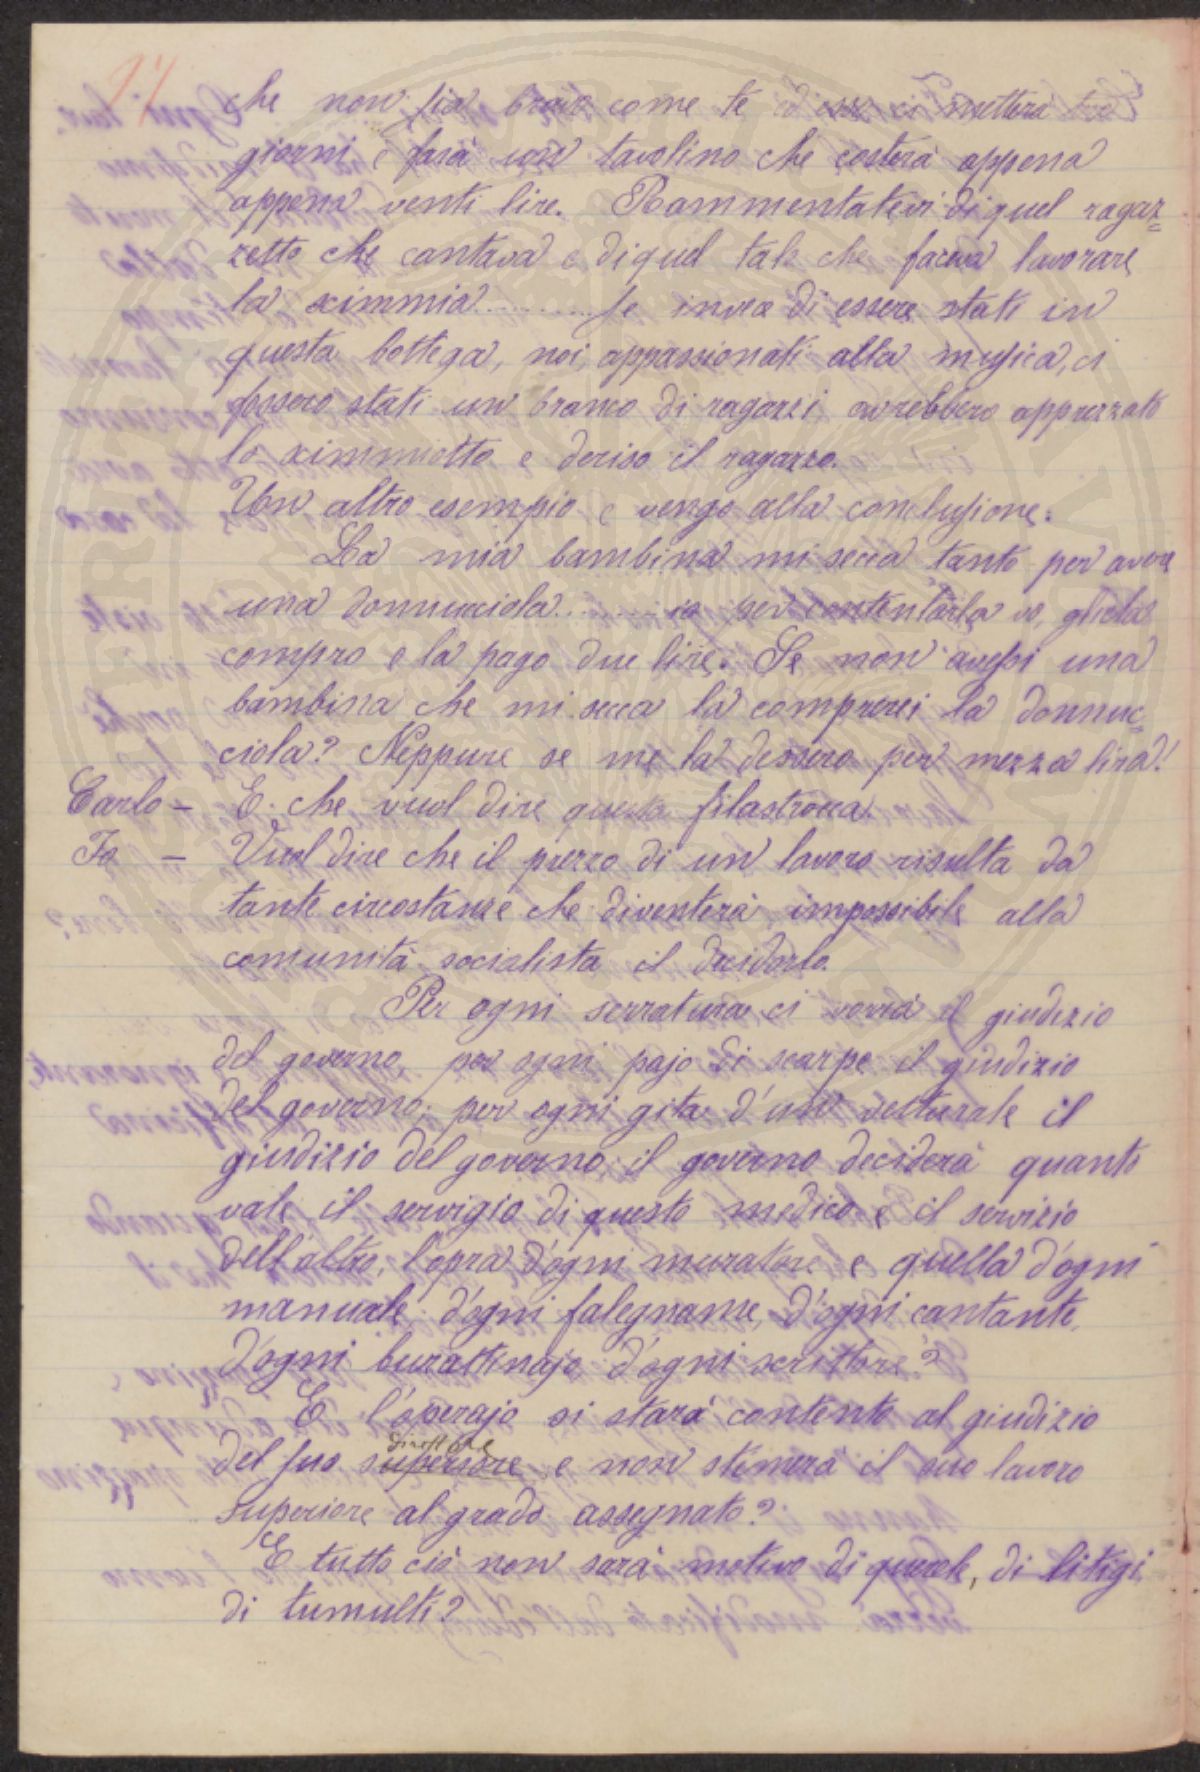 97
che non sia bravo come te ed esso ci metterà tre
giorni e farà un tavolino che costerà appena
appena venti lire. Rammentatevi di quel ragaz=
zetto che cantava e di quel tale che faceva lavorare
la scimmia.......... Se invece di essere stati in
questa bottega, noi, appassionati alla musica, ci
fossero stati un branco di ragazzi avrebbero apprezzato
lo scimmiotto e deriso il ragazzo.
Un altro esempio e vengo alla conclusione.
La mia bambina mi secca tanto per avere
una donnucciola........ io per contentarla vo, gliela
compro e la pago due lire. Se non avessi una
bambina che mi secca la comprerei la donnuc=
ciola? Neppure se me la dessero per mezza lira!
Carlo — E che vuol dire questa filastrocca.
Io — Vuol dire che il prezzo di un lavoro risulta da
tante circostanze che diventerà impossibile alla
comunità socialista il deciderlo.
Per ogni serratura ci vorrà il giudizio
del governo, per ogni pajo di scarpe il giudizio
del governo; per ogni gita d'un vetturale il
giudizio del governo; il governo deciderà quanto
vale il servigio di questo medico e il servizio
dell'altro, l'opra d'ogni muratore e quella d'ogni
manuale; d'ogni falegname, d'ogni cantante,
d'ogni burattinajo, d'ogni scrittore?
E l'operajo si starà contento al giudizio
direttore
del suo superiore e non stimerà il suo lavoro
superiore al grado assegnato?
E tutto ciò non sarà motivo di querele, di litigi
di tumulti?